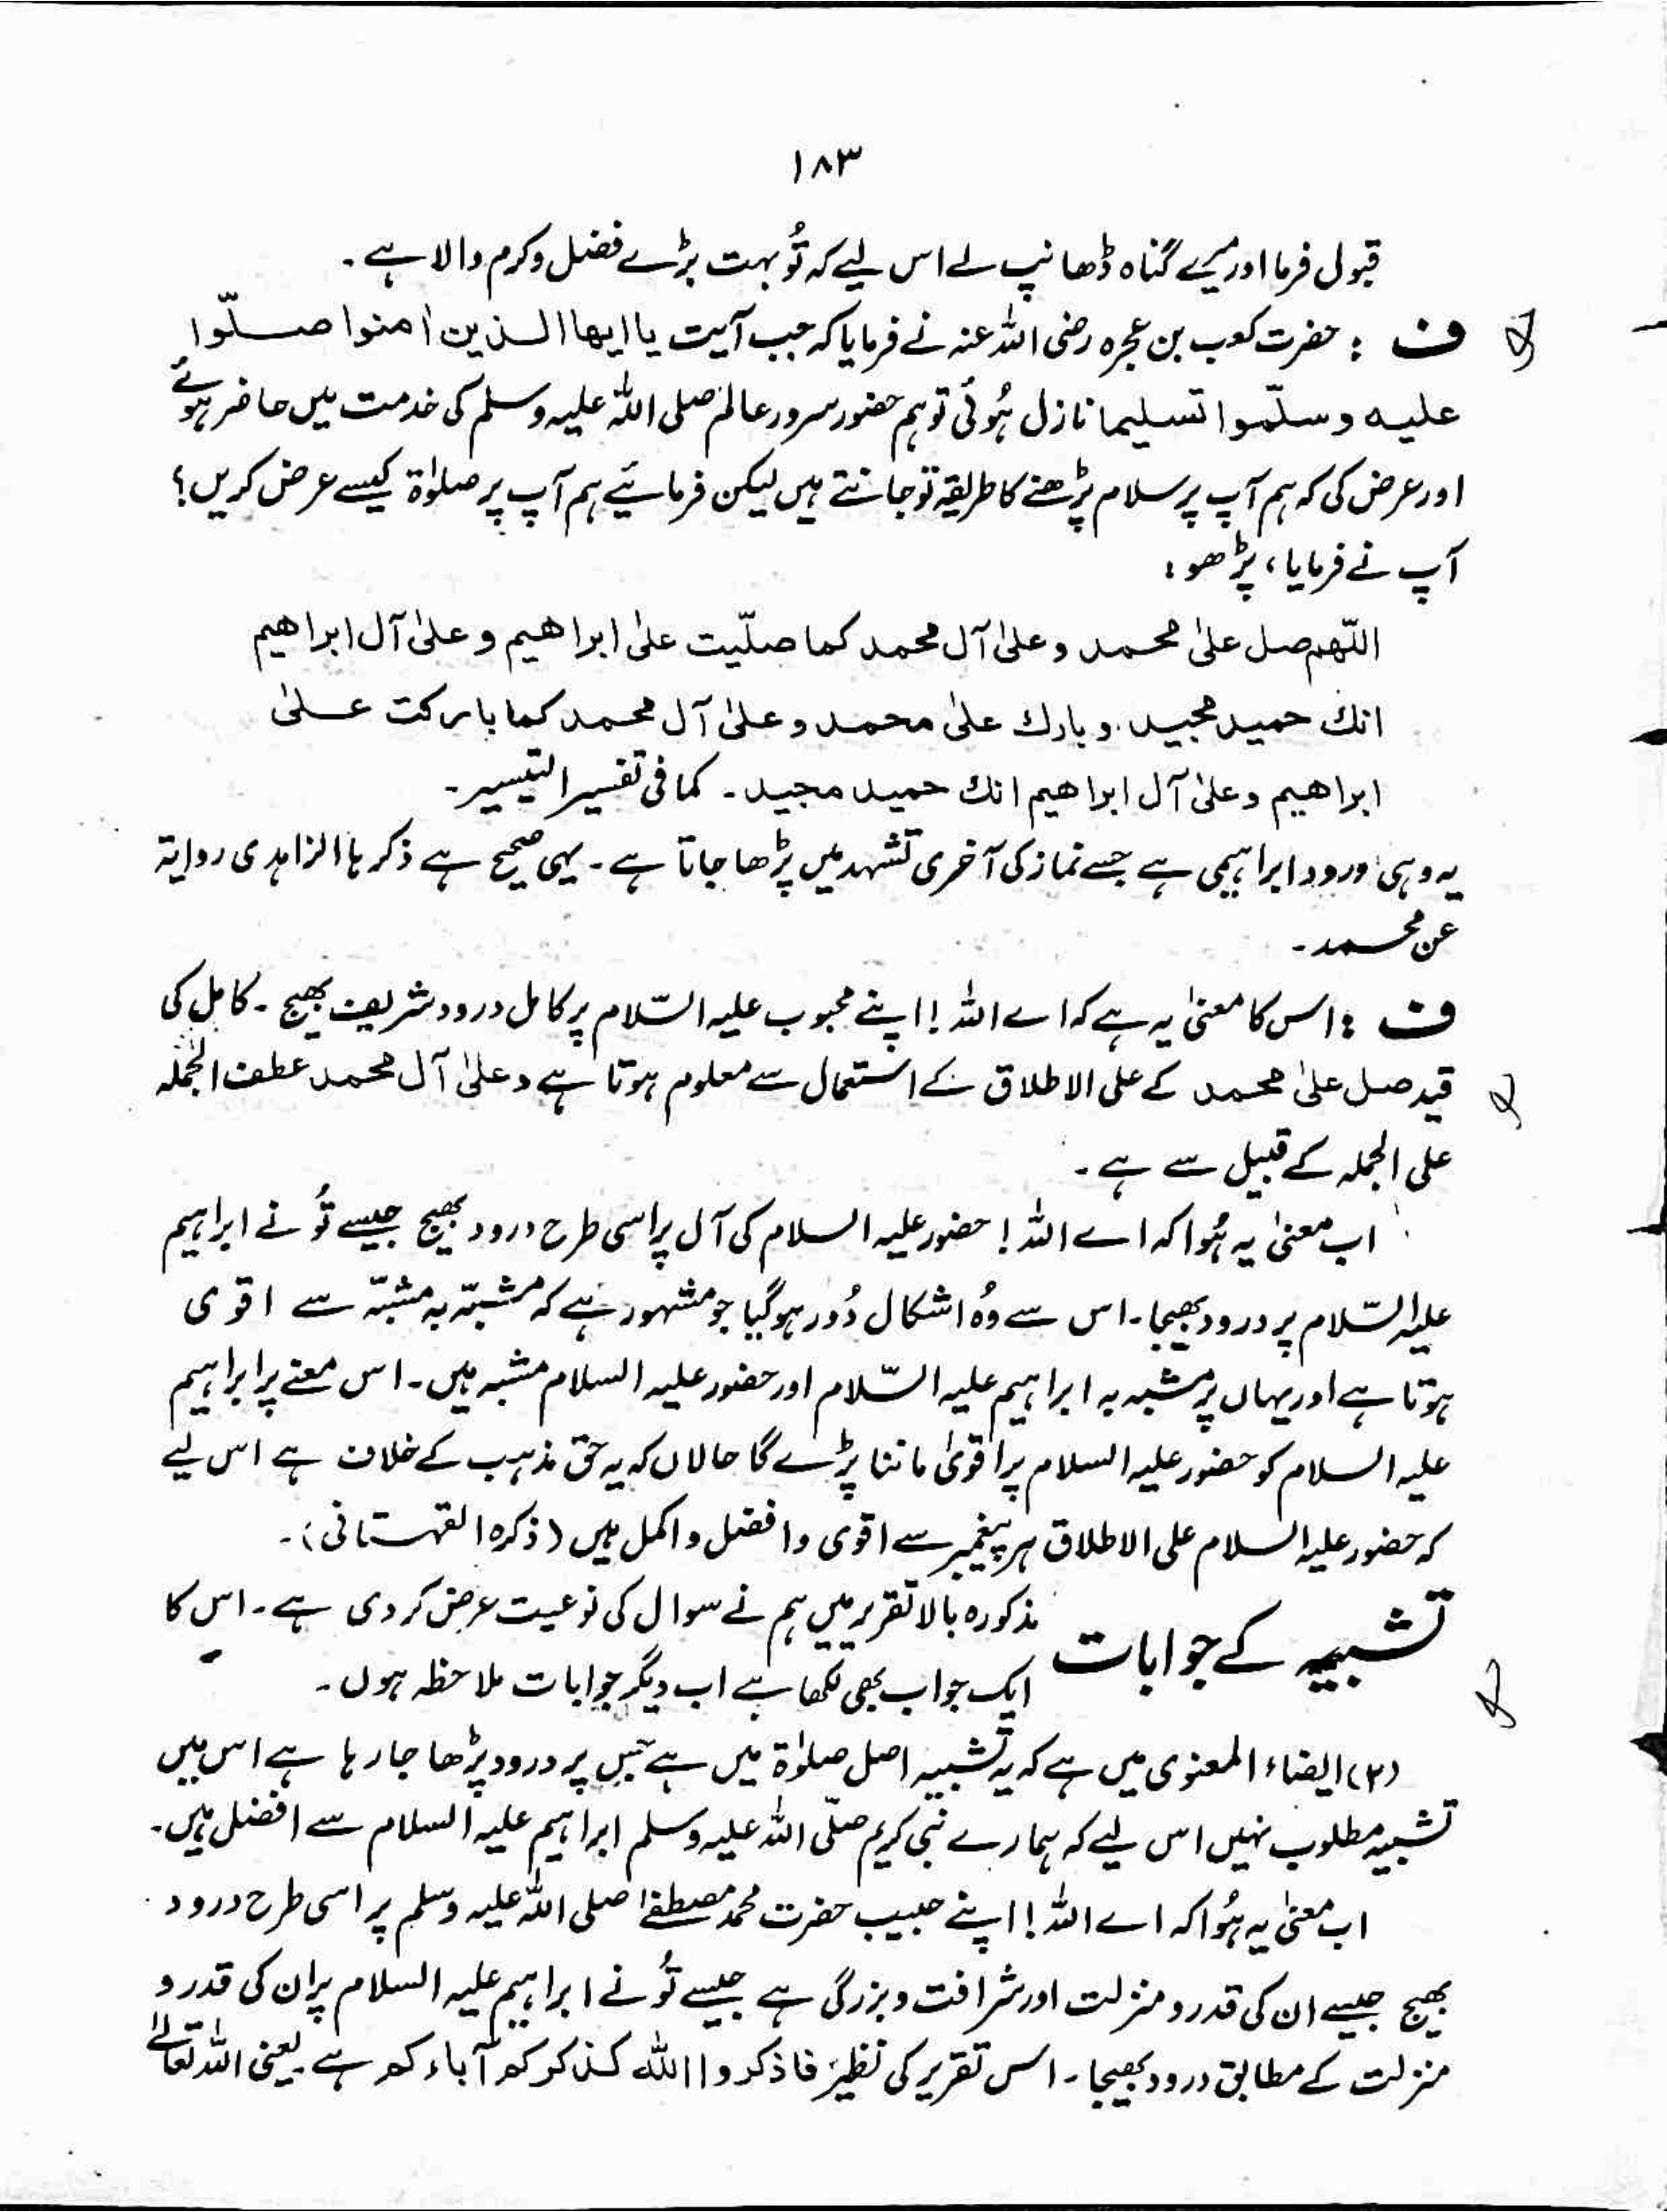 ۱۸۳
قبول فرما اور میرے گناہ ڈھانپ لے اس لیے کہ تُو بہت بڑے فضل و کرم والا ہے ۔
ف : حضرت کعب بن عجرہ رضی اللہ عنہ نے فرمایا کہ جب آیت یا ایھا الذین اٰمنوا صلّوا
علیہ وسلّموا تسلیما نازل ہُوئی تو ہم حضور سرور عالم صلی اللہ علیہ وسلم کی خدمت میں حاضر ہوئے
اور عرض کی کہ ہم آپ پر سلام پڑھنے کا طریقہ تو جانتے ہیں لیکن فرمائیے ہم آپ پر صلوٰۃ کیسے عرض کریں؟
آپ نے فرمایا، پڑھو :
اللّٰھم صل علیٰ محمد وعلیٰ آل محمد کما صلّیت علیٰ ابراھیم وعلیٰ آل ابراھیم
انك حمید مجید. وبارك علیٰ محمد وعلیٰ آل محمد کما بارکت علیٰ
ابراھیم وعلیٰ آل ابراھیم انك حمید مجید۔ کما فی تفسیر التیسیر۔
یہ وہی درود ابراہیمی ہے جسے نماز کی آخری تشہد میں پڑھا جاتا ہے ۔ یہی صحیح ہے ذکرہا الزاہدی روایۃ
عن محمد ۔
ف : اس کا معنیٰ یہ ہے کہ اے اللہ! اپنے محبوب علیہ السّلام پر کامل درود شریف بھیج ۔ کامل کی
قید صل علیٰ محمد کے علی الاطلاق کے استعمال سے معلوم ہوتا ہے وعلیٰ آل محمد عطف الجملہ
علی الجملہ کے قبیل سے ہے ۔
اب معنیٰ یہ ہُوا کہ اے اللہ! حضور علیہ السلام کی آل پر اسی طرح درود بھیج جیسے تُو نے ابراہیم
علیہ السّلام پر درود بھیجا۔ اس سے وُہ اشکال دُور ہو گیا جو مشہور ہے کہ مشبّہ بہ مشبّہ سے اقوی
ہوتا ہے اور یہاں پر مشبہ بہ ابراہیم علیہ السّلام اور حضور علیہ السلام مشبہ ہیں۔ اس معنے پر ابراہیم
علیہ السلام کو حضور علیہ السلام پر اقویٰ ماننا پڑے گا حالاں کہ یہ حق مذہب کے خلاف ہے اس لیے
کہ حضور علیہ السلام علی الاطلاق ہر پیغمبر سے اقوی و افضل و اکمل ہیں (ذکرہ القہستانی)۔
تشبیہ کے جوابات
مذکورہ بالا تقریر میں ہم نے سوال کی نوعیت عرض کر دی ہے ۔ اس کا
ایک جواب بھی لکھا ہے اب دیگر جوابات ملاحظہ ہوں ۔
(۲) الضاء المعنوی میں ہے کہ یہ تشبیہ اصل صلوٰۃ میں ہے جس پر درود پڑھا جا رہا ہے اس میں
تشبیہ مطلوب نہیں اس لیے کہ ہمارے نبی کریم صلّی اللہ علیہ وسلم ابراہیم علیہ السلام سے افضل ہیں۔
اب معنیٰ یہ ہُوا کہ اے اللہ! اپنے حبیب حضرت محمد مصطفےٰ صلی اللہ علیہ وسلم پر اسی طرح درود
بھیج جیسے ان کی قدر و منزلت اور شرافت و بزرگی ہے جیسے تُو نے ابراہیم علیہ السلام پر ان کی قدر و
منزلت کے مطابق درود بھیجا۔ اس تقریر کی نظیر فاذکروا اللہ کذکرکم آباءکم ہے۔ یعنی اللہ تعالےٰ